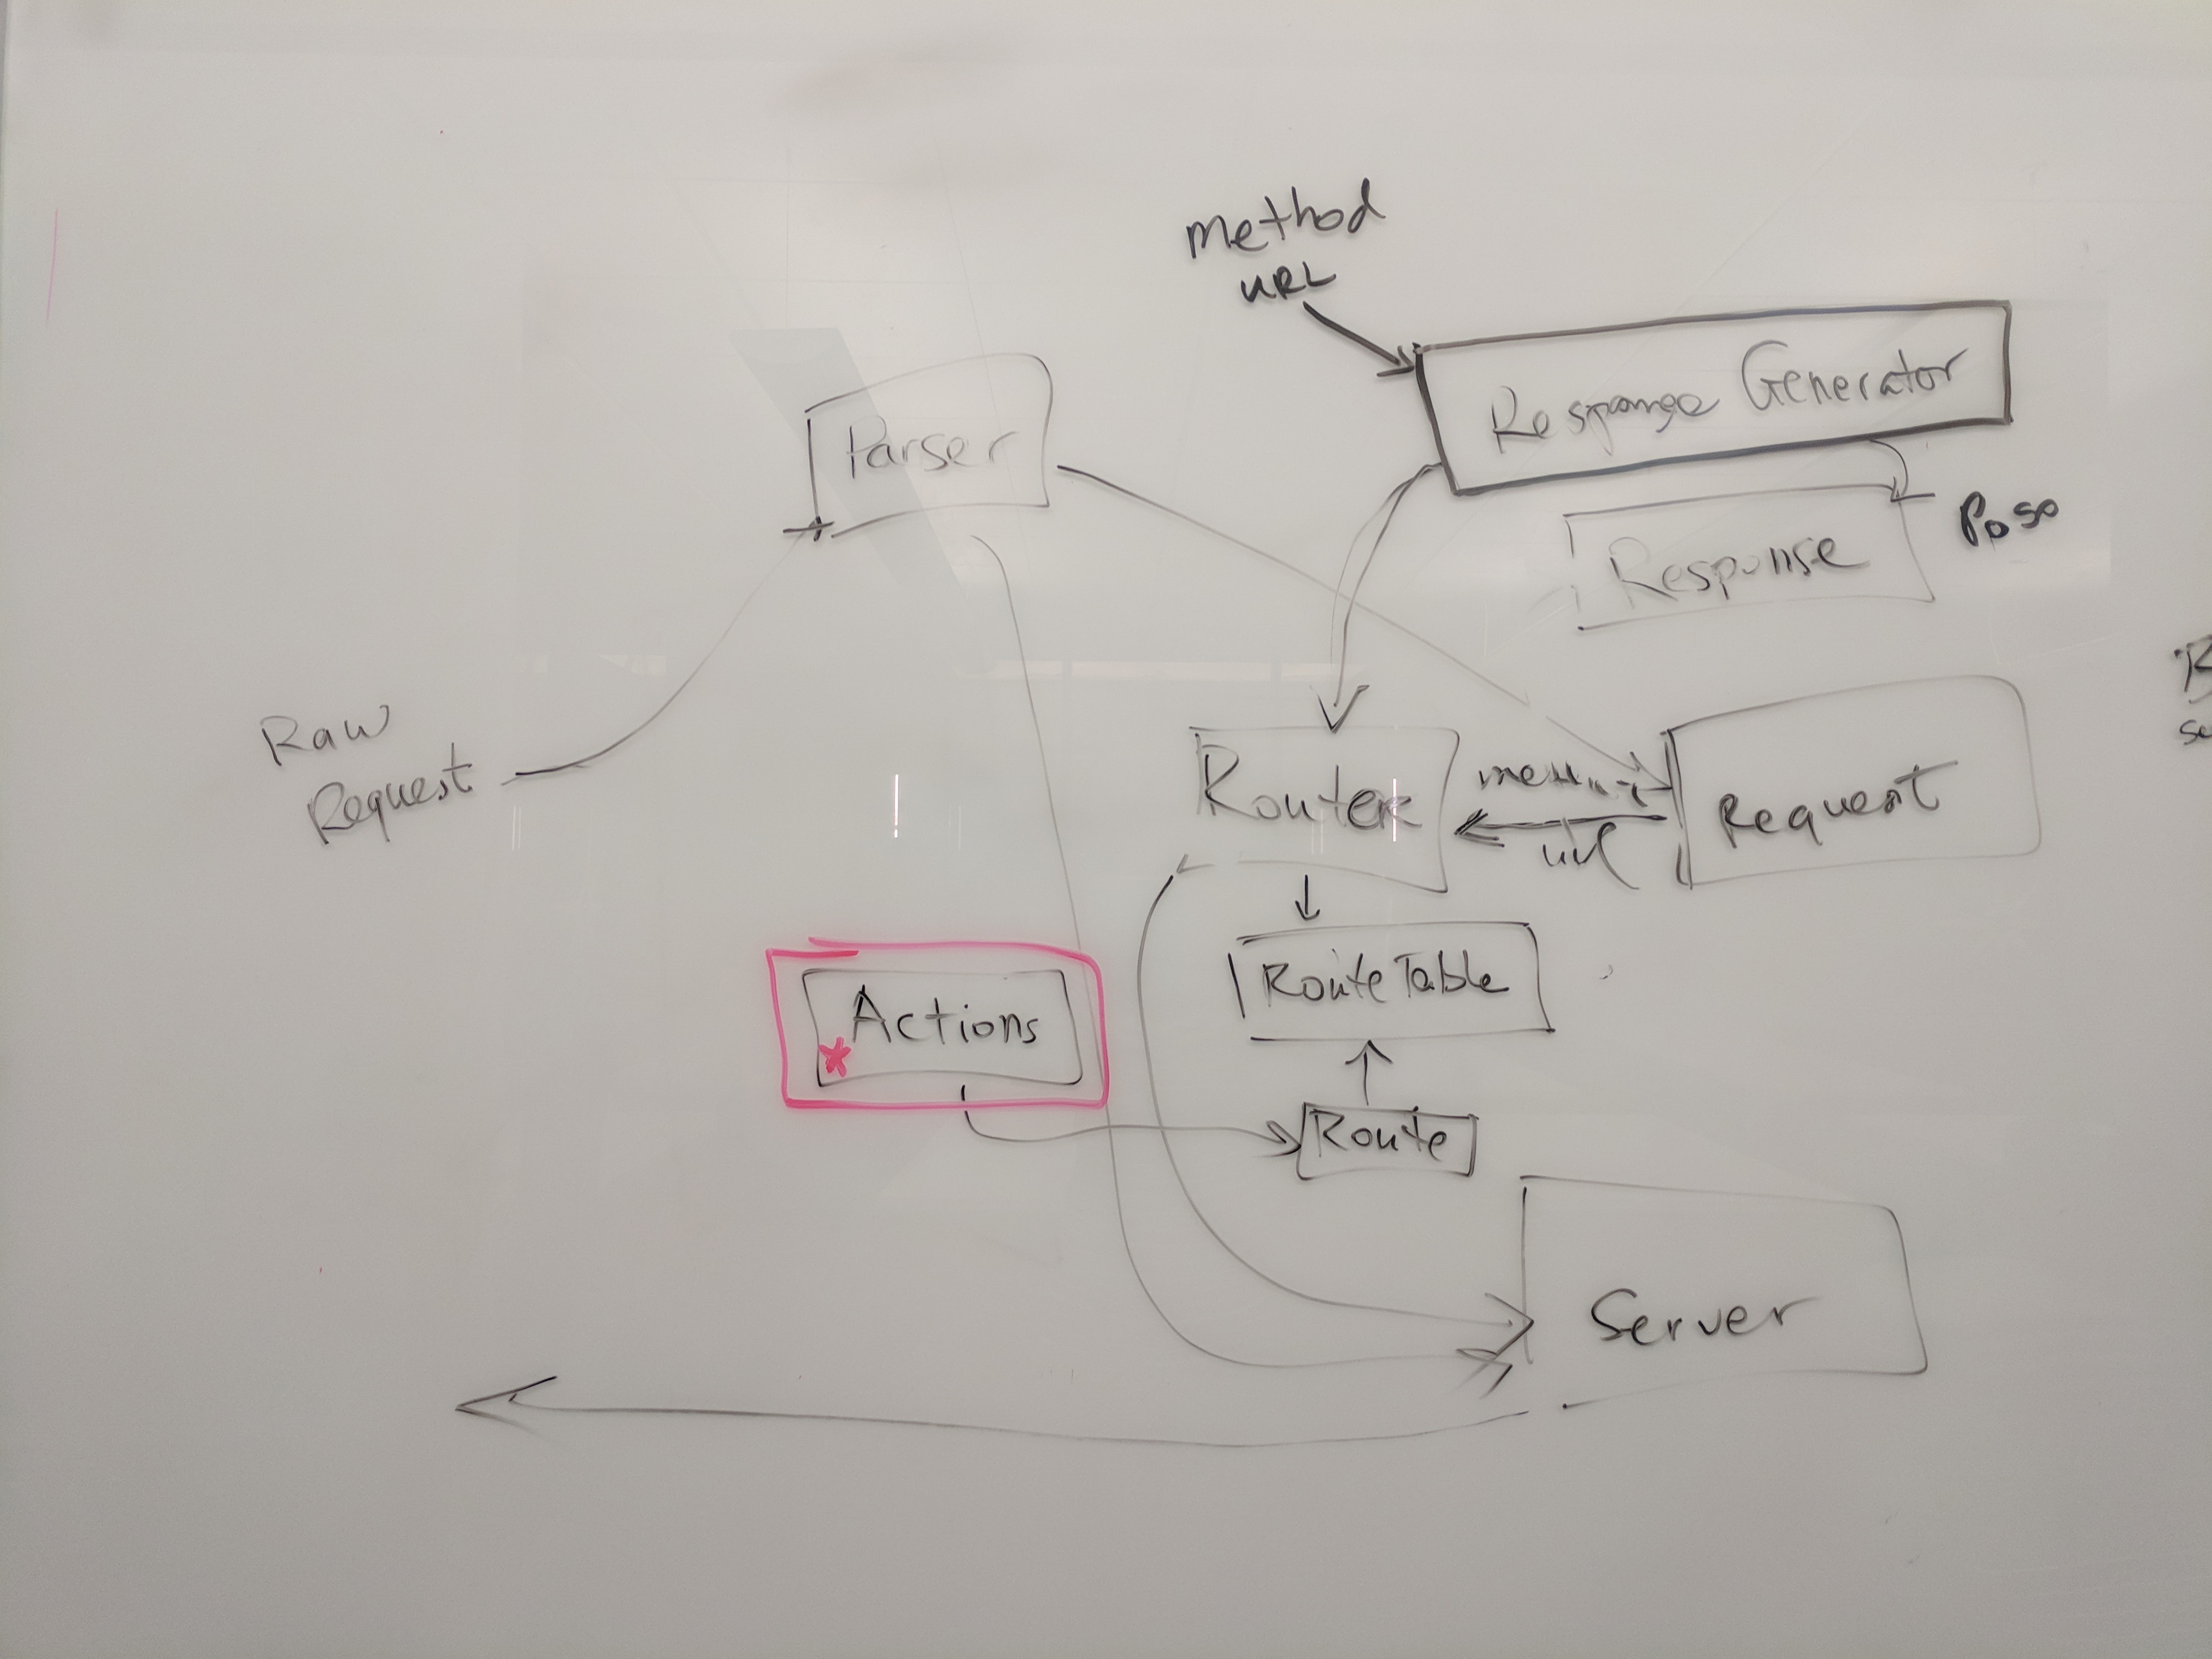 method
URL
Response Generator
Parser
Poso
Response
Raw
Request
Router
url
Request
Route Table
*Actions
Route
Server